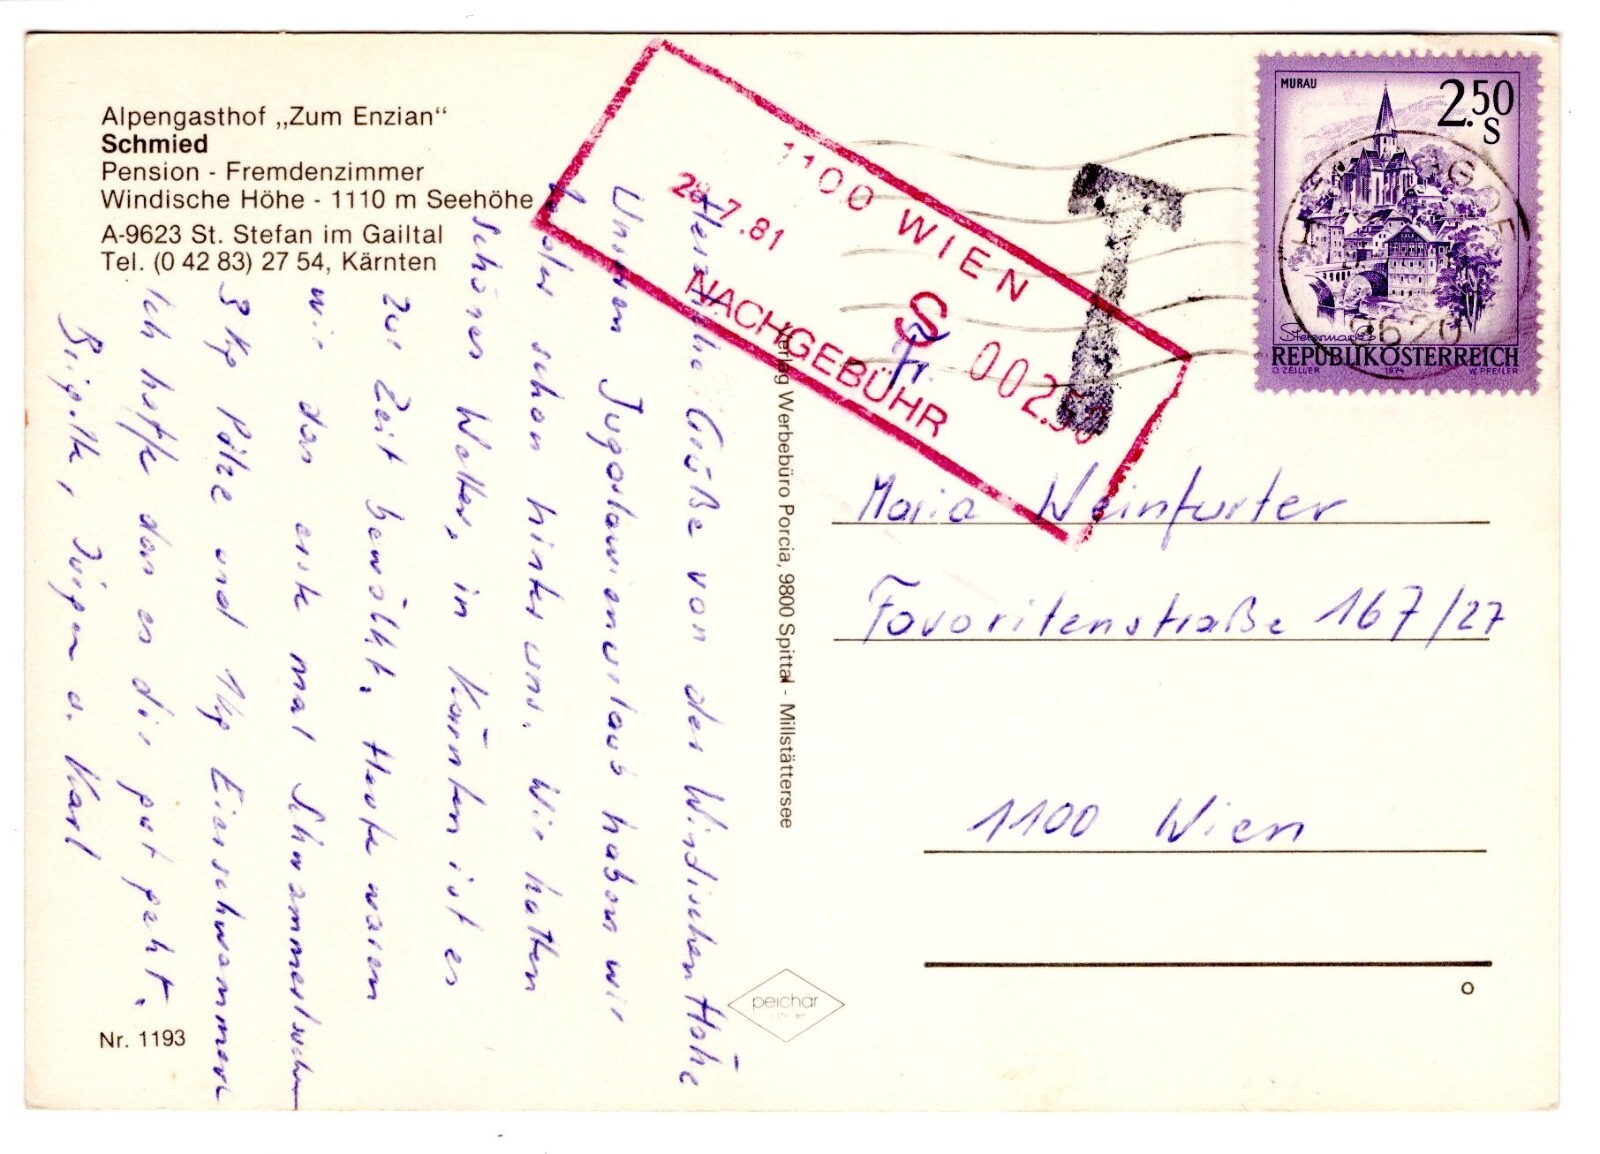 Alpengasthof „Zum Enzian“
Schmied
Pension - Fremdenzimmer
Windische Höhe - 1110 m Seehöhe
A-9623 St. Stefan im Gailtal
Tel. (0 42 83) 27 54, Kärnten
Herzliche Grüße von der Windischen Höhe
Unseren Jugoslawienurlaub haben wir
leider schon hinter uns. Wir hatten
schönes Wetter, in Kärnten ist es
zur Zeit bewölkt. Heute waren
wir das erste mal Schwammerlsuchen
3 kg Pilze und 1 kg Eierschwammerl
Ich hoffe das es dir gut geht.
Brigitte, Jürgen u. Karl
Nr. 1193
Verlag Werbebüro Porcia, 9800 Spittal - Millstättersee
peichar
1100 WIEN
28.7.81
S 002.50
NACHGEBÜHR
T
Fr.
MURAU
2.50
S
Steiermark
REPUBLIK ÖSTERREICH
O. ZEILLER 1974 W. PFEILER
9620
Maria Weinfurter
Favoritenstraße 167/27
1100 Wien